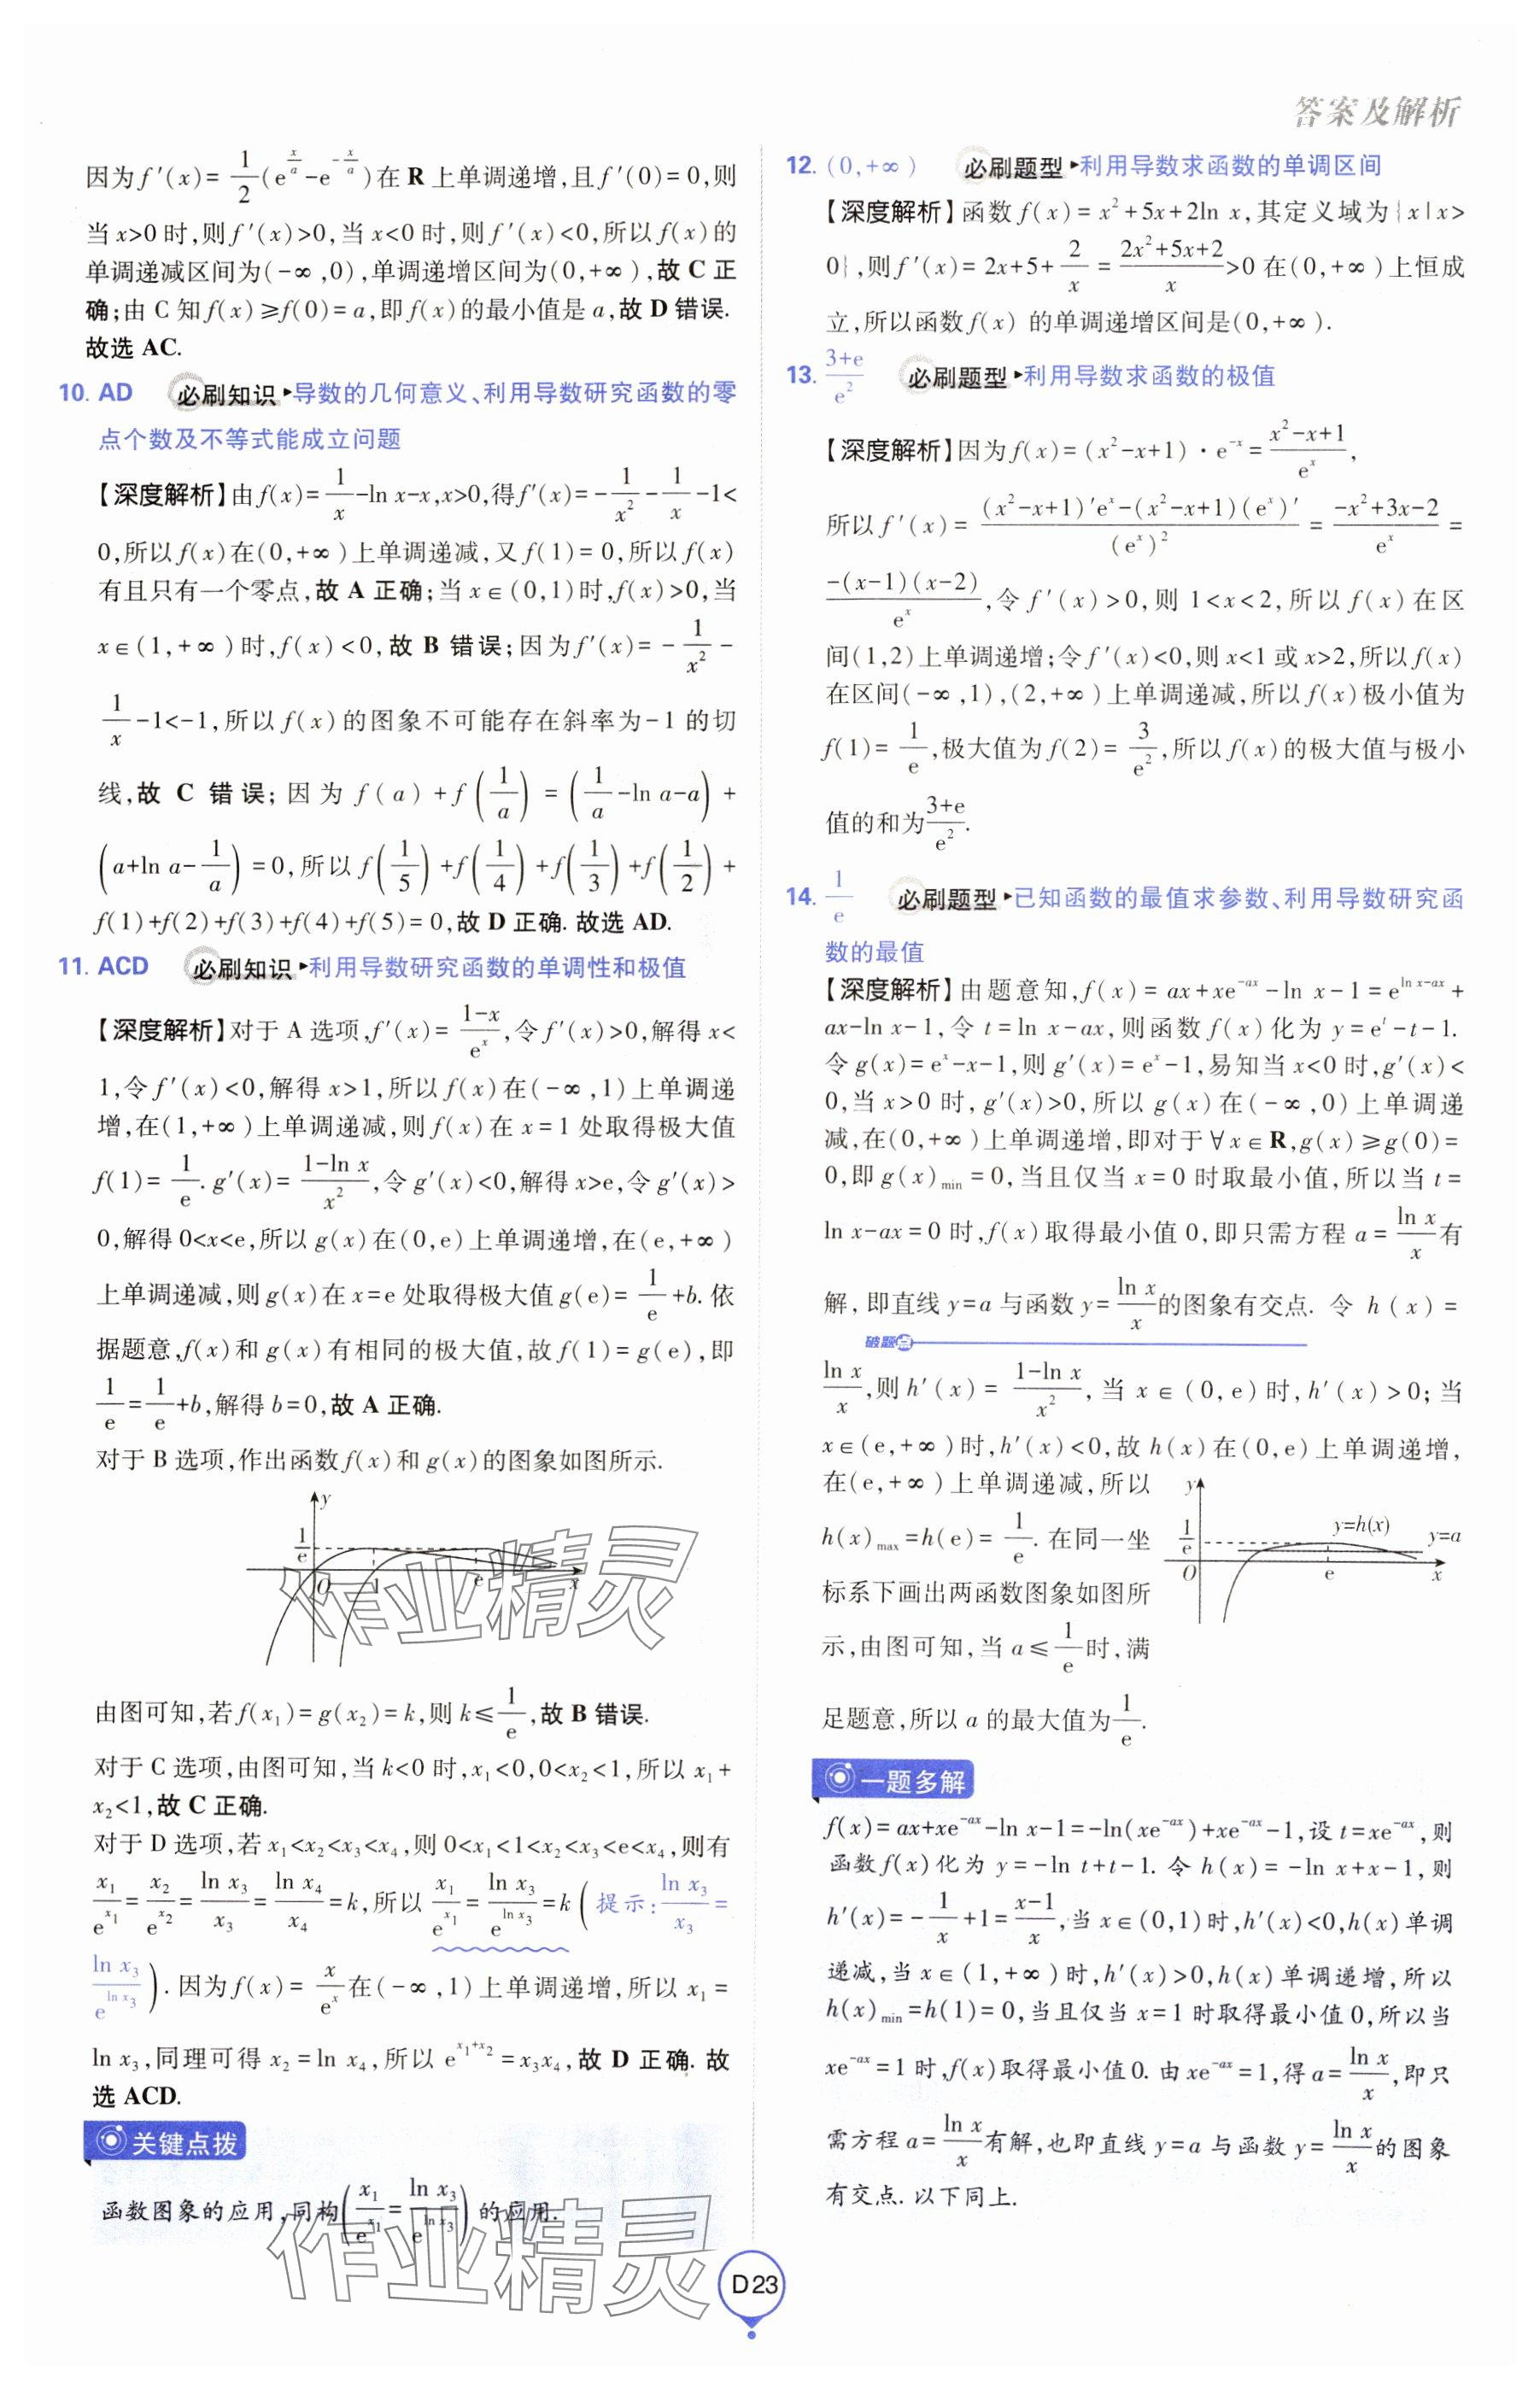 答案及解析
因为f′(x)=1/2(e^(x/a)-e^(-x/a))在R上单调递增,且f′(0)=0,则
当x>0时,则f′(x)>0,当x<0时,则f′(x)<0,所以f(x)的
单调递减区间为(-∞,0),单调递增区间为(0,+∞),故C正
确;由C知f(x)≥f(0)=a,即f(x)的最小值是a,故D错误.
故选AC.
10. AD 必刷知识▸导数的几何意义、利用导数研究函数的零
点个数及不等式能成立问题
【深度解析】由f(x)=1/x-ln x-x,x>0,得f′(x)=-1/x²-1/x-1<
0,所以f(x)在(0,+∞)上单调递减,又f(1)=0,所以f(x)
有且只有一个零点,故A正确;当x∈(0,1)时,f(x)>0,当
x∈(1,+∞)时,f(x)<0,故B错误;因为f′(x)=-1/x²-
1/x-1<-1,所以f(x)的图象不可能存在斜率为-1的切
线,故C错误;因为f(a)+f(1/a)=(1/a-ln a-a)+
(a+ln a-1/a)=0,所以f(1/5)+f(1/4)+f(1/3)+f(1/2)+
f(1)+f(2)+f(3)+f(4)+f(5)=0,故D正确.故选AD.
11. ACD 必刷知识▸利用导数研究函数的单调性和极值
【深度解析】对于A选项,f′(x)=(1-x)/e^x,令f′(x)>0,解得x<
1,令f′(x)<0,解得x>1,所以f(x)在(-∞,1)上单调递
增,在(1,+∞)上单调递减,则f(x)在x=1处取得极大值
f(1)=1/e.g′(x)=(1-ln x)/x²,令g′(x)<0,解得x>e,令g′(x)>
0,解得0<x<e,所以g(x)在(0,e)上单调递增,在(e,+∞)
上单调递减,则g(x)在x=e处取得极大值g(e)=1/e+b.依
据题意,f(x)和g(x)有相同的极大值,故f(1)=g(e),即
1/e=1/e+b,解得b=0,故A正确.
对于B选项,作出函数f(x)和g(x)的图象如图所示.
y
1/e
O 1 e x
作业精灵
由图可知,若f(x₁)=g(x₂)=k,则k≤1/e,故B错误.
对于C选项,由图可知,当k<0时,x₁<0,0<x₂<1,所以x₁+
x₂<1,故C正确.
对于D选项,若x₁<x₂<x₃<x₄,则0<x₁<1<x₂<x₃<e<x₄,则有
x₁/e^(x₁)=x₂/e^(x₂)=ln x₃/x₃=ln x₄/x₄=k,所以x₁/e^(x₁)=ln x₃/e^(ln x₃)=k(提示:ln x₃/x₃=
ln x₃/e^(ln x₃)).因为f(x)=x/e^x在(-∞,1)上单调递增,所以x₁=
ln x₃,同理可得x₂=ln x₄,所以e^(x₁+x₂)=x₃x₄,故D正确.故
选ACD.
关键点拨
函数图象的应用,同构(x₁/e^(x₁)=ln x₃/e^(ln x₃))的应用.
作业精灵
12. (0,+∞) 必刷题型▸利用导数求函数的单调区间
【深度解析】函数f(x)=x²+5x+2ln x,其定义域为{x|x>
0},则f′(x)=2x+5+2/x=(2x²+5x+2)/x>0在(0,+∞)上恒成
立,所以函数f(x)的单调递增区间是(0,+∞).
13. (3+e)/e² 必刷题型▸利用导数求函数的极值
【深度解析】因为f(x)=(x²-x+1)·e^(-x)=(x²-x+1)/e^x,
所以f′(x)=((x²-x+1)′e^x-(x²-x+1)(e^x)′)/(e^x)²=(-x²+3x-2)/e^x=
-(x-1)(x-2)/e^x,令f′(x)>0,则1<x<2,所以f(x)在区
间(1,2)上单调递增;令f′(x)<0,则x<1或x>2,所以f(x)
在区间(-∞,1),(2,+∞)上单调递减,所以f(x)极小值为
f(1)=1/e,极大值为f(2)=3/e²,所以f(x)的极大值与极小
值的和为(3+e)/e².
14. 1/e 必刷题型▸已知函数的最值求参数、利用导数研究函
数的最值
【深度解析】由题意知,f(x)=ax+xe^(-ax)-ln x-1=e^(ln x-ax)+
ax-ln x-1,令t=ln x-ax,则函数f(x)化为y=e^t-t-1.
令g(x)=e^x-x-1,则g′(x)=e^x-1,易知当x<0时,g′(x)<
0,当x>0时,g′(x)>0,所以g(x)在(-∞,0)上单调递
减,在(0,+∞)上单调递增,即对于∀x∈R,g(x)≥g(0)=
0,即g(x)min=0,当且仅当x=0时取最小值,所以当t=
ln x-ax=0时,f(x)取得最小值0,即只需方程a=ln x/x有
解,即直线y=a与函数y=ln x/x的图象有交点.令h(x)=
破题点
ln x/x,则h′(x)=(1-ln x)/x²,当x∈(0,e)时,h′(x)>0;当
x∈(e,+∞)时,h′(x)<0,故h(x)在(0,e)上单调递增,
在(e,+∞)上单调递减,所以
h(x)max=h(e)=1/e.在同一坐
标系下画出两函数图象如图所
示,由图可知,当a≤1/e时,满
足题意,所以a的最大值为1/e.
y
1/e y=h(x) y=a
O e x
一题多解
f(x)=ax+xe^(-ax)-ln x-1=-ln(xe^(-ax))+xe^(-ax)-1,设t=xe^(-ax),则
函数f(x)化为y=-ln t+t-1.令h(x)=-ln x+x-1,则
h′(x)=-1/x+1=(x-1)/x,当x∈(0,1)时,h′(x)<0,h(x)单调
递减,当x∈(1,+∞)时,h′(x)>0,h(x)单调递增,所以
h(x)min=h(1)=0,当且仅当x=1时取得最小值0,所以当
xe^(-ax)=1时,f(x)取得最小值0.由xe^(-ax)=1,得a=ln x/x,即只
需方程a=ln x/x有解,也即直线y=a与函数y=ln x/x的图象
有交点.以下同上.
D23